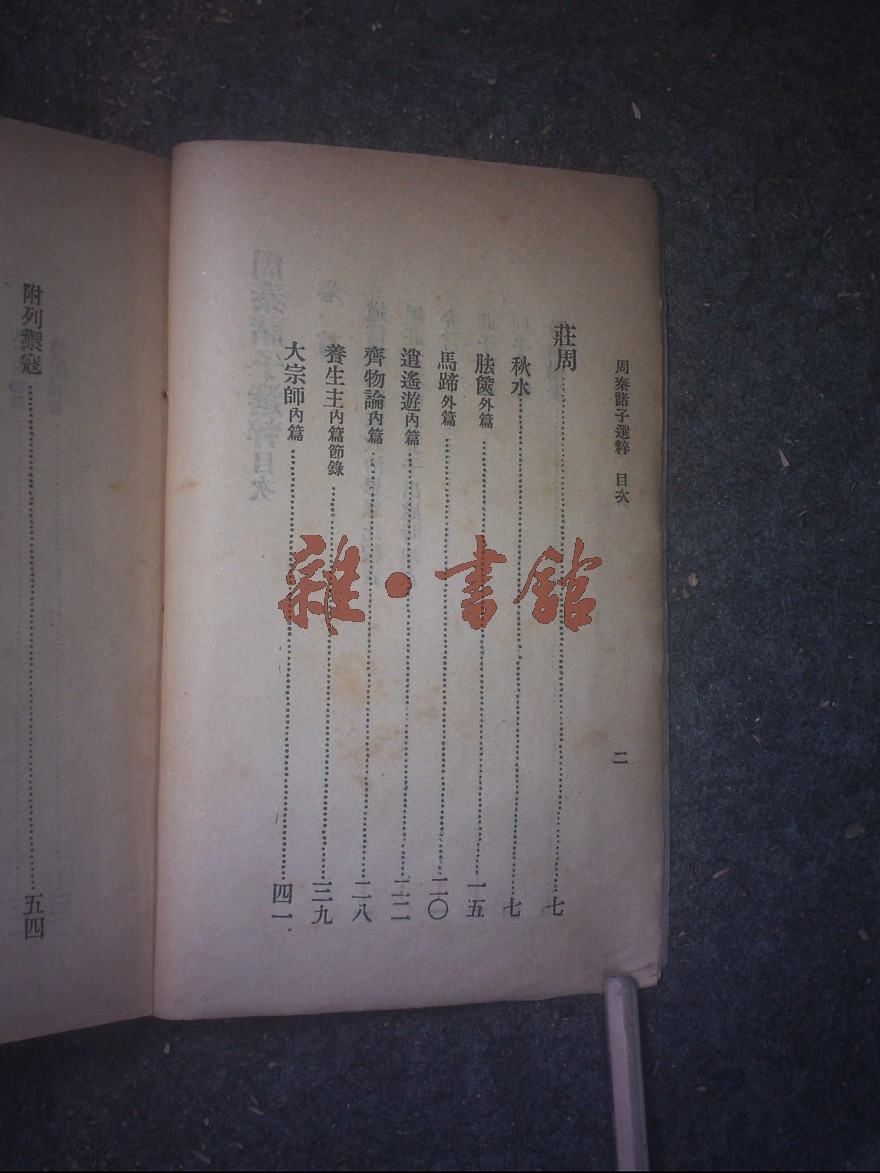 周秦諸子選粹 目次
二
莊周……七
秋水……七
胠篋外篇……一五
馬蹄外篇……二〇
逍遙遊內篇……二二
齊物論內篇……二八
養生主內篇節錄……三九
大宗師內篇……四一
附列禦寇……五四
雜·書館